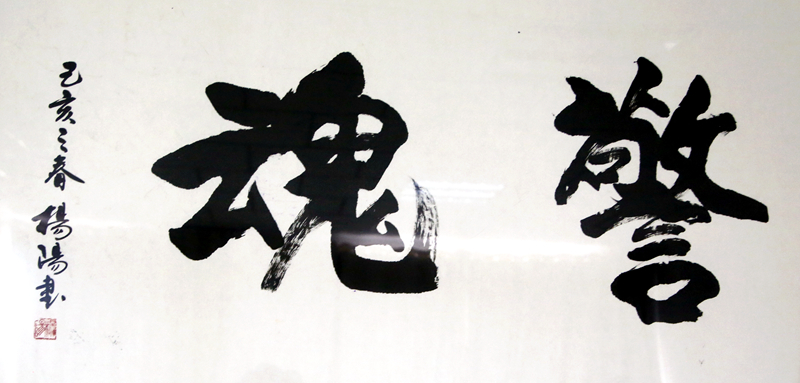 警魂
己亥之春 楊陽書